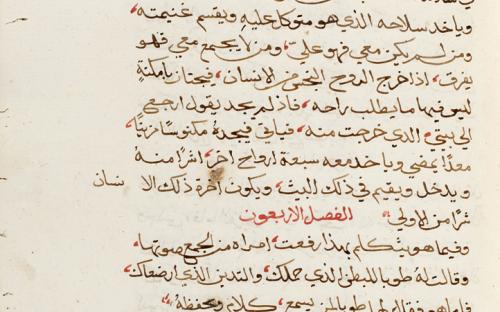 وياخد سلاحه الذي هو متوكل عليه ويقسم غنيمته،
ومن لم يكن معي فهو علي، ومن لا يجمع معي فهو
يفرق، اذا خرج الروح النجس من الانسان، فيجتاز بامكنة
ليس فيها ما يطلب راحه، فاذ لم يجد يقول ارجع
الى بيتي الذي خرجت منه، فياتي فيجده مكنوسا مزينا،
معدا يمضي وياخد معه سبعة ارواح اخر، اشرا منه
ويدخل ويقيم في ذلك البيت، ويكون اخرة ذلك الانسان
شرا من الاولى، الفصل الاربعون
وفيما هو يتكلم بهذا رفعت، امراه من الجمع صوتها،
وقالت له طوبا للبطن الذي حملك، والتديين الذي ارضعاك،
فاما هو فقال لها طوبا لمن يسمع، كلام ويحفظه